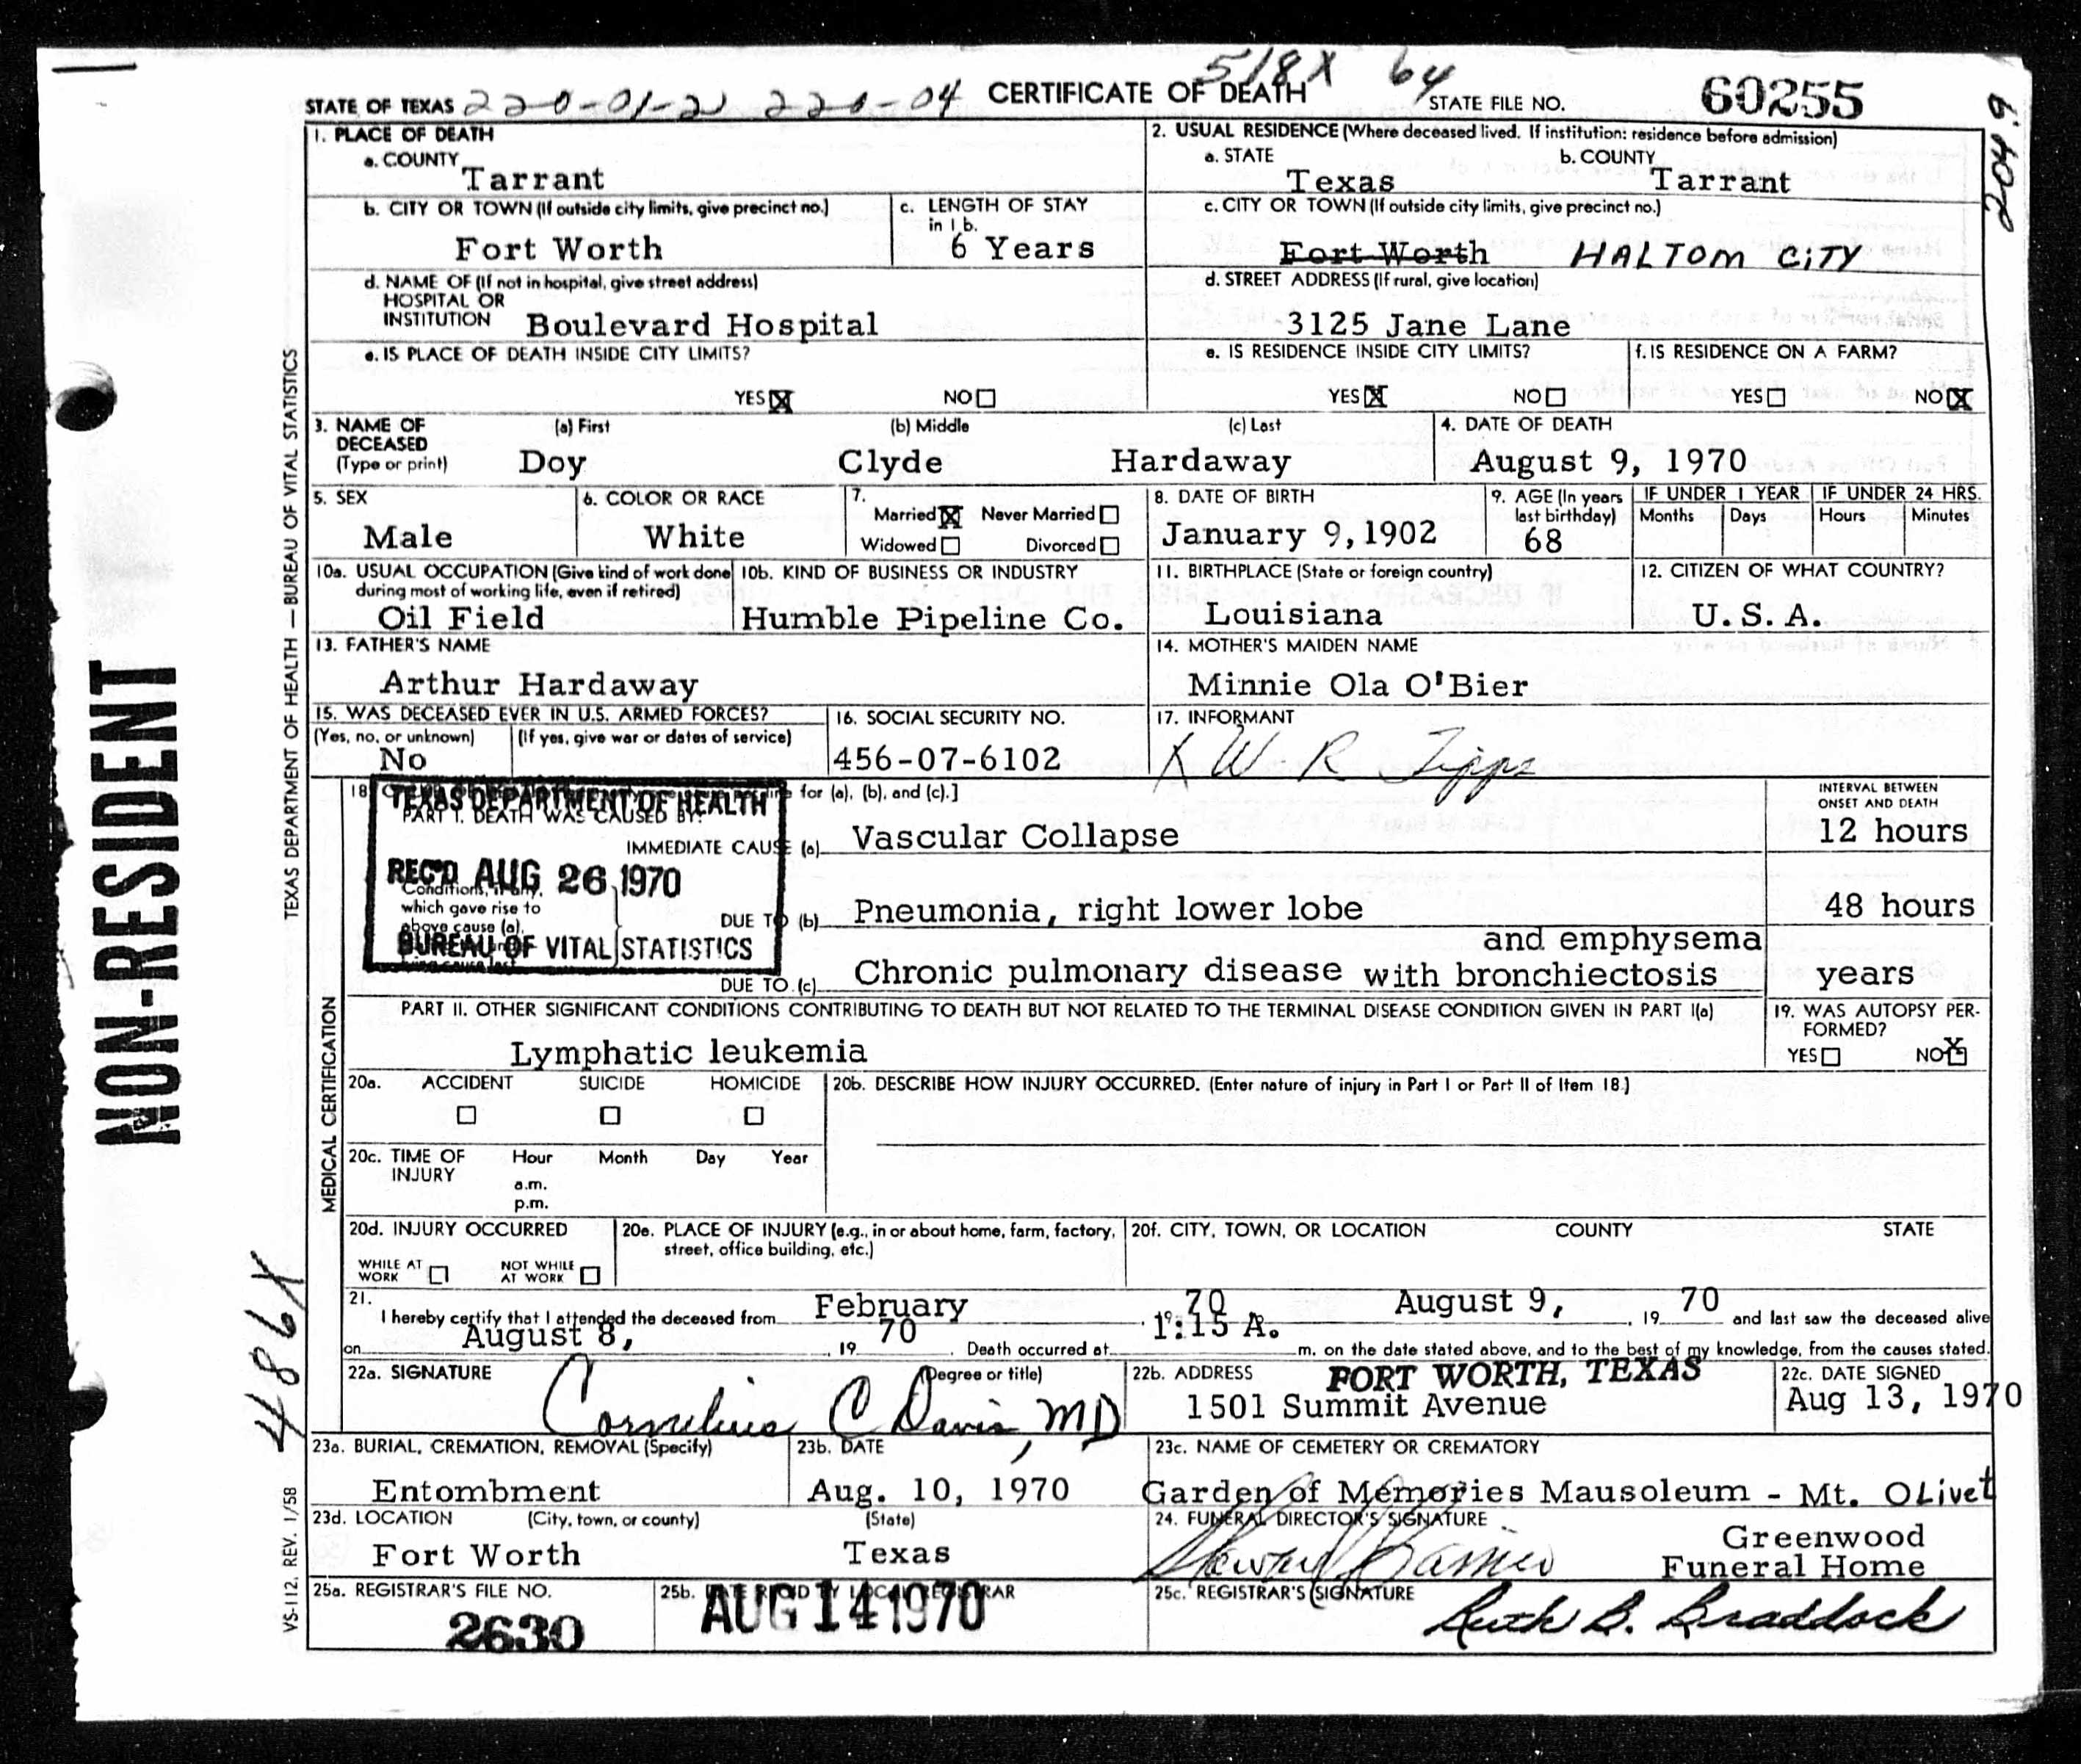 518X 64
STATE OF TEXAS 220-01-2 220-04 CERTIFICATE OF DEATH STATE FILE NO. 60255
204.9
1. PLACE OF DEATH
a. COUNTY
Tarrant
2. USUAL RESIDENCE (Where deceased lived. If institution: residence before admission)
a. STATE b. COUNTY
Texas Tarrant
b. CITY OR TOWN (If outside city limits, give precinct no.)
Fort Worth
c. LENGTH OF STAY
in 1b.
6 Years
c. CITY OR TOWN (If outside city limits, give precinct no.)
Fort Worth HALTOM CITY
d. NAME OF (If not in hospital, give street address)
HOSPITAL OR
INSTITUTION Boulevard Hospital
d. STREET ADDRESS (If rural, give location)
3125 Jane Lane
e. IS PLACE OF DEATH INSIDE CITY LIMITS?
YES X NO
e. IS RESIDENCE INSIDE CITY LIMITS?
YES X NO
f. IS RESIDENCE ON A FARM?
YES NO X
3. NAME OF
DECEASED
(Type or print)
(a) First (b) Middle (c) Last
Doy Clyde Hardaway
4. DATE OF DEATH
August 9, 1970
5. SEX
Male
6. COLOR OR RACE
White
7.
Married X Never Married
Widowed Divorced
8. DATE OF BIRTH
January 9, 1902
9. AGE (In years
last birthday)
68
IF UNDER 1 YEAR IF UNDER 24 HRS.
Months Days Hours Minutes
10a. USUAL OCCUPATION (Give kind of work done
during most of working life, even if retired)
Oil Field
10b. KIND OF BUSINESS OR INDUSTRY
Humble Pipeline Co.
11. BIRTHPLACE (State or foreign country)
Louisiana
12. CITIZEN OF WHAT COUNTRY?
U.S.A.
13. FATHER'S NAME
Arthur Hardaway
14. MOTHER'S MAIDEN NAME
Minnie Ola O'Bier
15. WAS DECEASED EVER IN U.S. ARMED FORCES?
(Yes, no, or unknown) (If yes, give war or dates of service)
No
16. SOCIAL SECURITY NO.
456-07-6102
17. INFORMANT
X W R Tipps
18 for (a), (b), and (c).]
TEXAS DEPARTMENT OF HEALTH
PART I. DEATH WAS CAUSED BY:
REC'D AUG 26 1970
BUREAU OF VITAL STATISTICS
INTERVAL BETWEEN
ONSET AND DEATH
IMMEDIATE CAUSE (a) Vascular Collapse 12 hours
Conditions, if any,
which gave rise to
above cause (a),
DUE TO (b) Pneumonia, right lower lobe 48 hours
and emphysema
DUE TO (c) Chronic pulmonary disease with bronchiectosis years
PART II. OTHER SIGNIFICANT CONDITIONS CONTRIBUTING TO DEATH BUT NOT RELATED TO THE TERMINAL DISEASE CONDITION GIVEN IN PART I(a)
Lymphatic leukemia
19. WAS AUTOPSY PER-
FORMED?
YES NO X
20a. ACCIDENT SUICIDE HOMICIDE
20b. DESCRIBE HOW INJURY OCCURRED. (Enter nature of injury in Part I or Part II of Item 18.)
20c. TIME OF
INJURY
Hour Month Day Year
a.m.
p.m.
20d. INJURY OCCURRED
WHILE AT
WORK
NOT WHILE
AT WORK
20e. PLACE OF INJURY (e.g., in or about home, farm, factory,
street, office building, etc.)
20f. CITY, TOWN, OR LOCATION COUNTY STATE
21.
I hereby certify that I attended the deceased from February 1970 August 9, 1970 and last saw the deceased alive
on August 8, 1970. Death occurred at 1:15 A. m. on the date stated above, and to the best of my knowledge, from the causes stated.
22a. SIGNATURE (Degree or title)
Cornelius C Davis, MD
22b. ADDRESS FORT WORTH, TEXAS
1501 Summit Avenue
22c. DATE SIGNED
Aug 13, 1970
23a. BURIAL, CREMATION, REMOVAL (Specify)
Entombment
23b. DATE
Aug. 10, 1970
23c. NAME OF CEMETERY OR CREMATORY
Garden of Memories Mausoleum - Mt. OLivet
23d. LOCATION (City, town, or county) (State)
Fort Worth Texas
24. FUNERAL DIRECTOR'S SIGNATURE
Greenwood
Funeral Home
25a. REGISTRAR'S FILE NO.
2630
25b. REGISTRAR
AUG 14 1970
25c. REGISTRAR'S SIGNATURE
Ruth B. Braddock
NON-RESIDENT
TEXAS DEPARTMENT OF HEALTH — BUREAU OF VITAL STATISTICS
MEDICAL CERTIFICATION
486X
VS-112, REV. 1/58